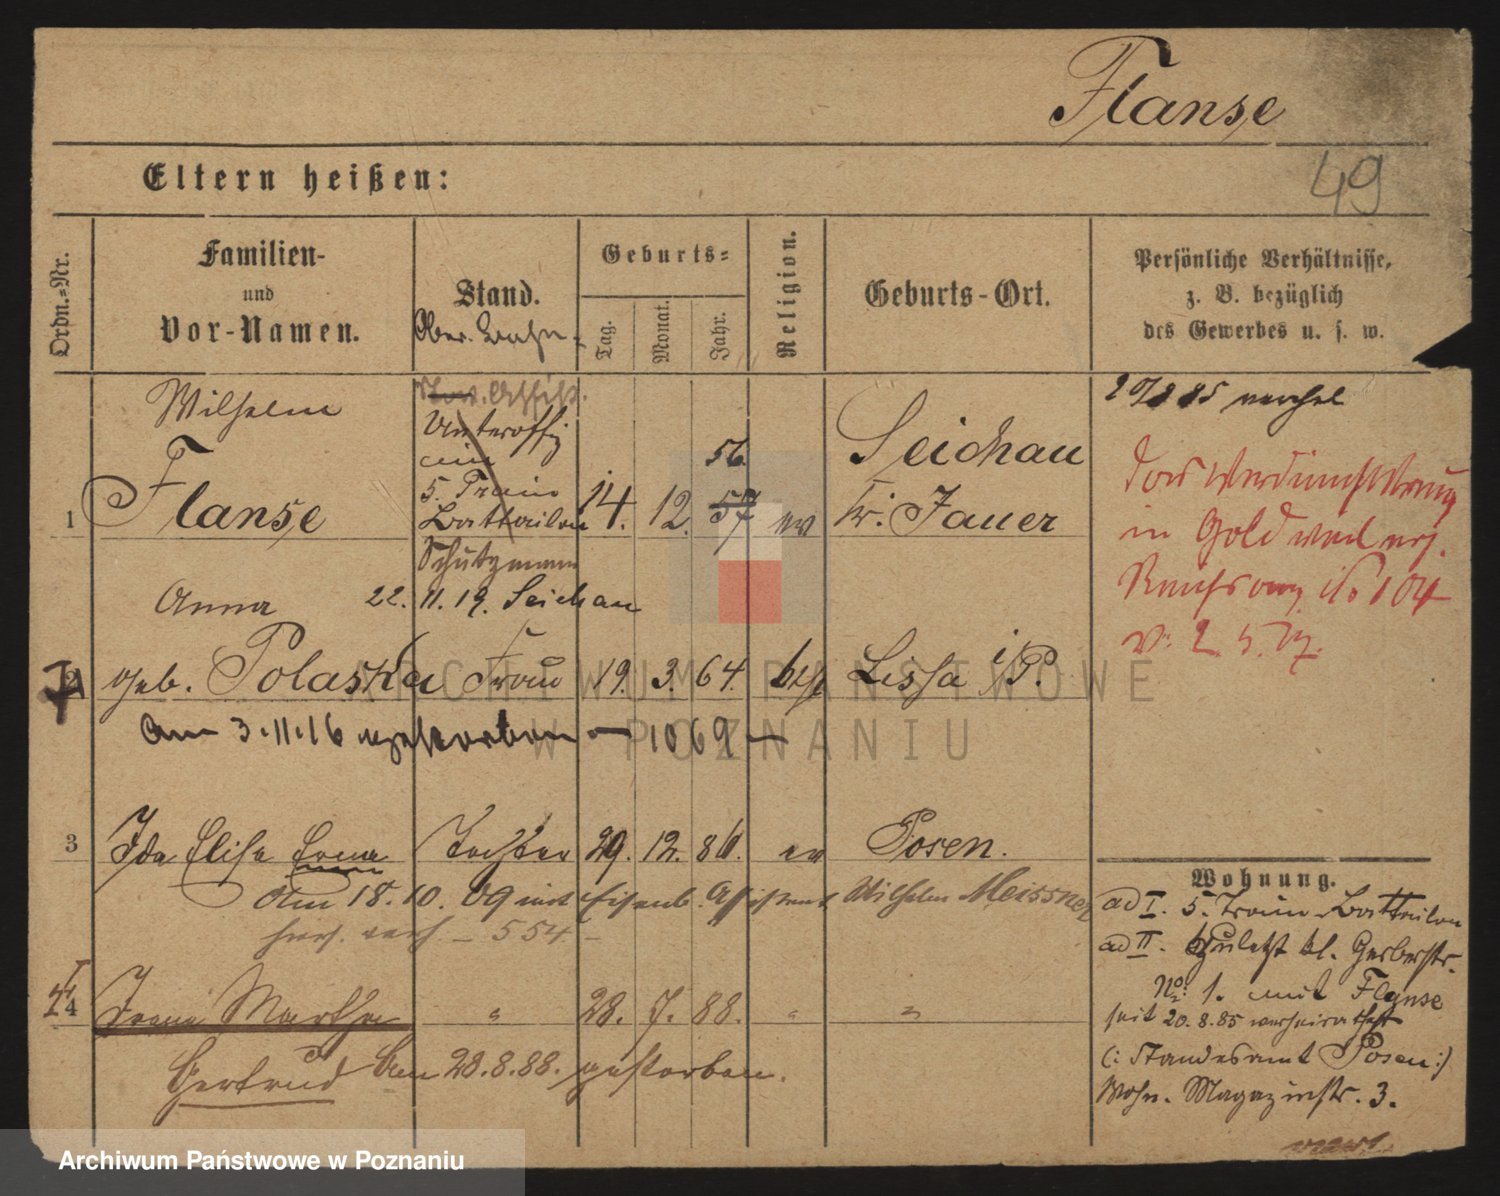 Flanse
49
Eltern heißen:
Ordn.-Nr.
Familien-
und
Vor-Namen.
Stand.
Geburts-
Tag.
Monat.
Jahr.
Religion.
Geburts-Ort.
Persönliche Verhältnisse,
z. B. bezüglich
des Gewerbes u. s. w.
Ober. Bahn-
Assist.
Wilhelm
Unteroffiz
im
5. Train
Battailon
1 Flanse 14. 12. 57 ev
56.
Seichau
Kr. Jauer
Schutzmann
Anna 22. 11. 19. Seichau
2 geb. Polaska Frau 19. 3. 64. Lissa i/P.
Am 3.11.16 gestorben — 1069 —
3 Ida Elise Erna Tochter 29. 12. 86. ev Posen.
Am 18. 10. 09 mit Eisenb. Assistent Wilhelm Meissner
verh — 554 —
4 Martha " 28. 7. 88. " "
Gertrud Am 28.8.88. gestorben.
Das
in Gold
104
v. 2. 5. 17.
Wohnung.
ad I. 5. Train-Battailon
ad II. zuletzt kl. Gerberstr.
No: 1. mit Flanse
seit 20.8.85 verheirathet
(: Standesamt Posen :)
Wohn. Magazinstr. 3.
ARCHIWUM PAŃSTWOWE
W POZNANIU
Archiwum Państwowe w Poznaniu